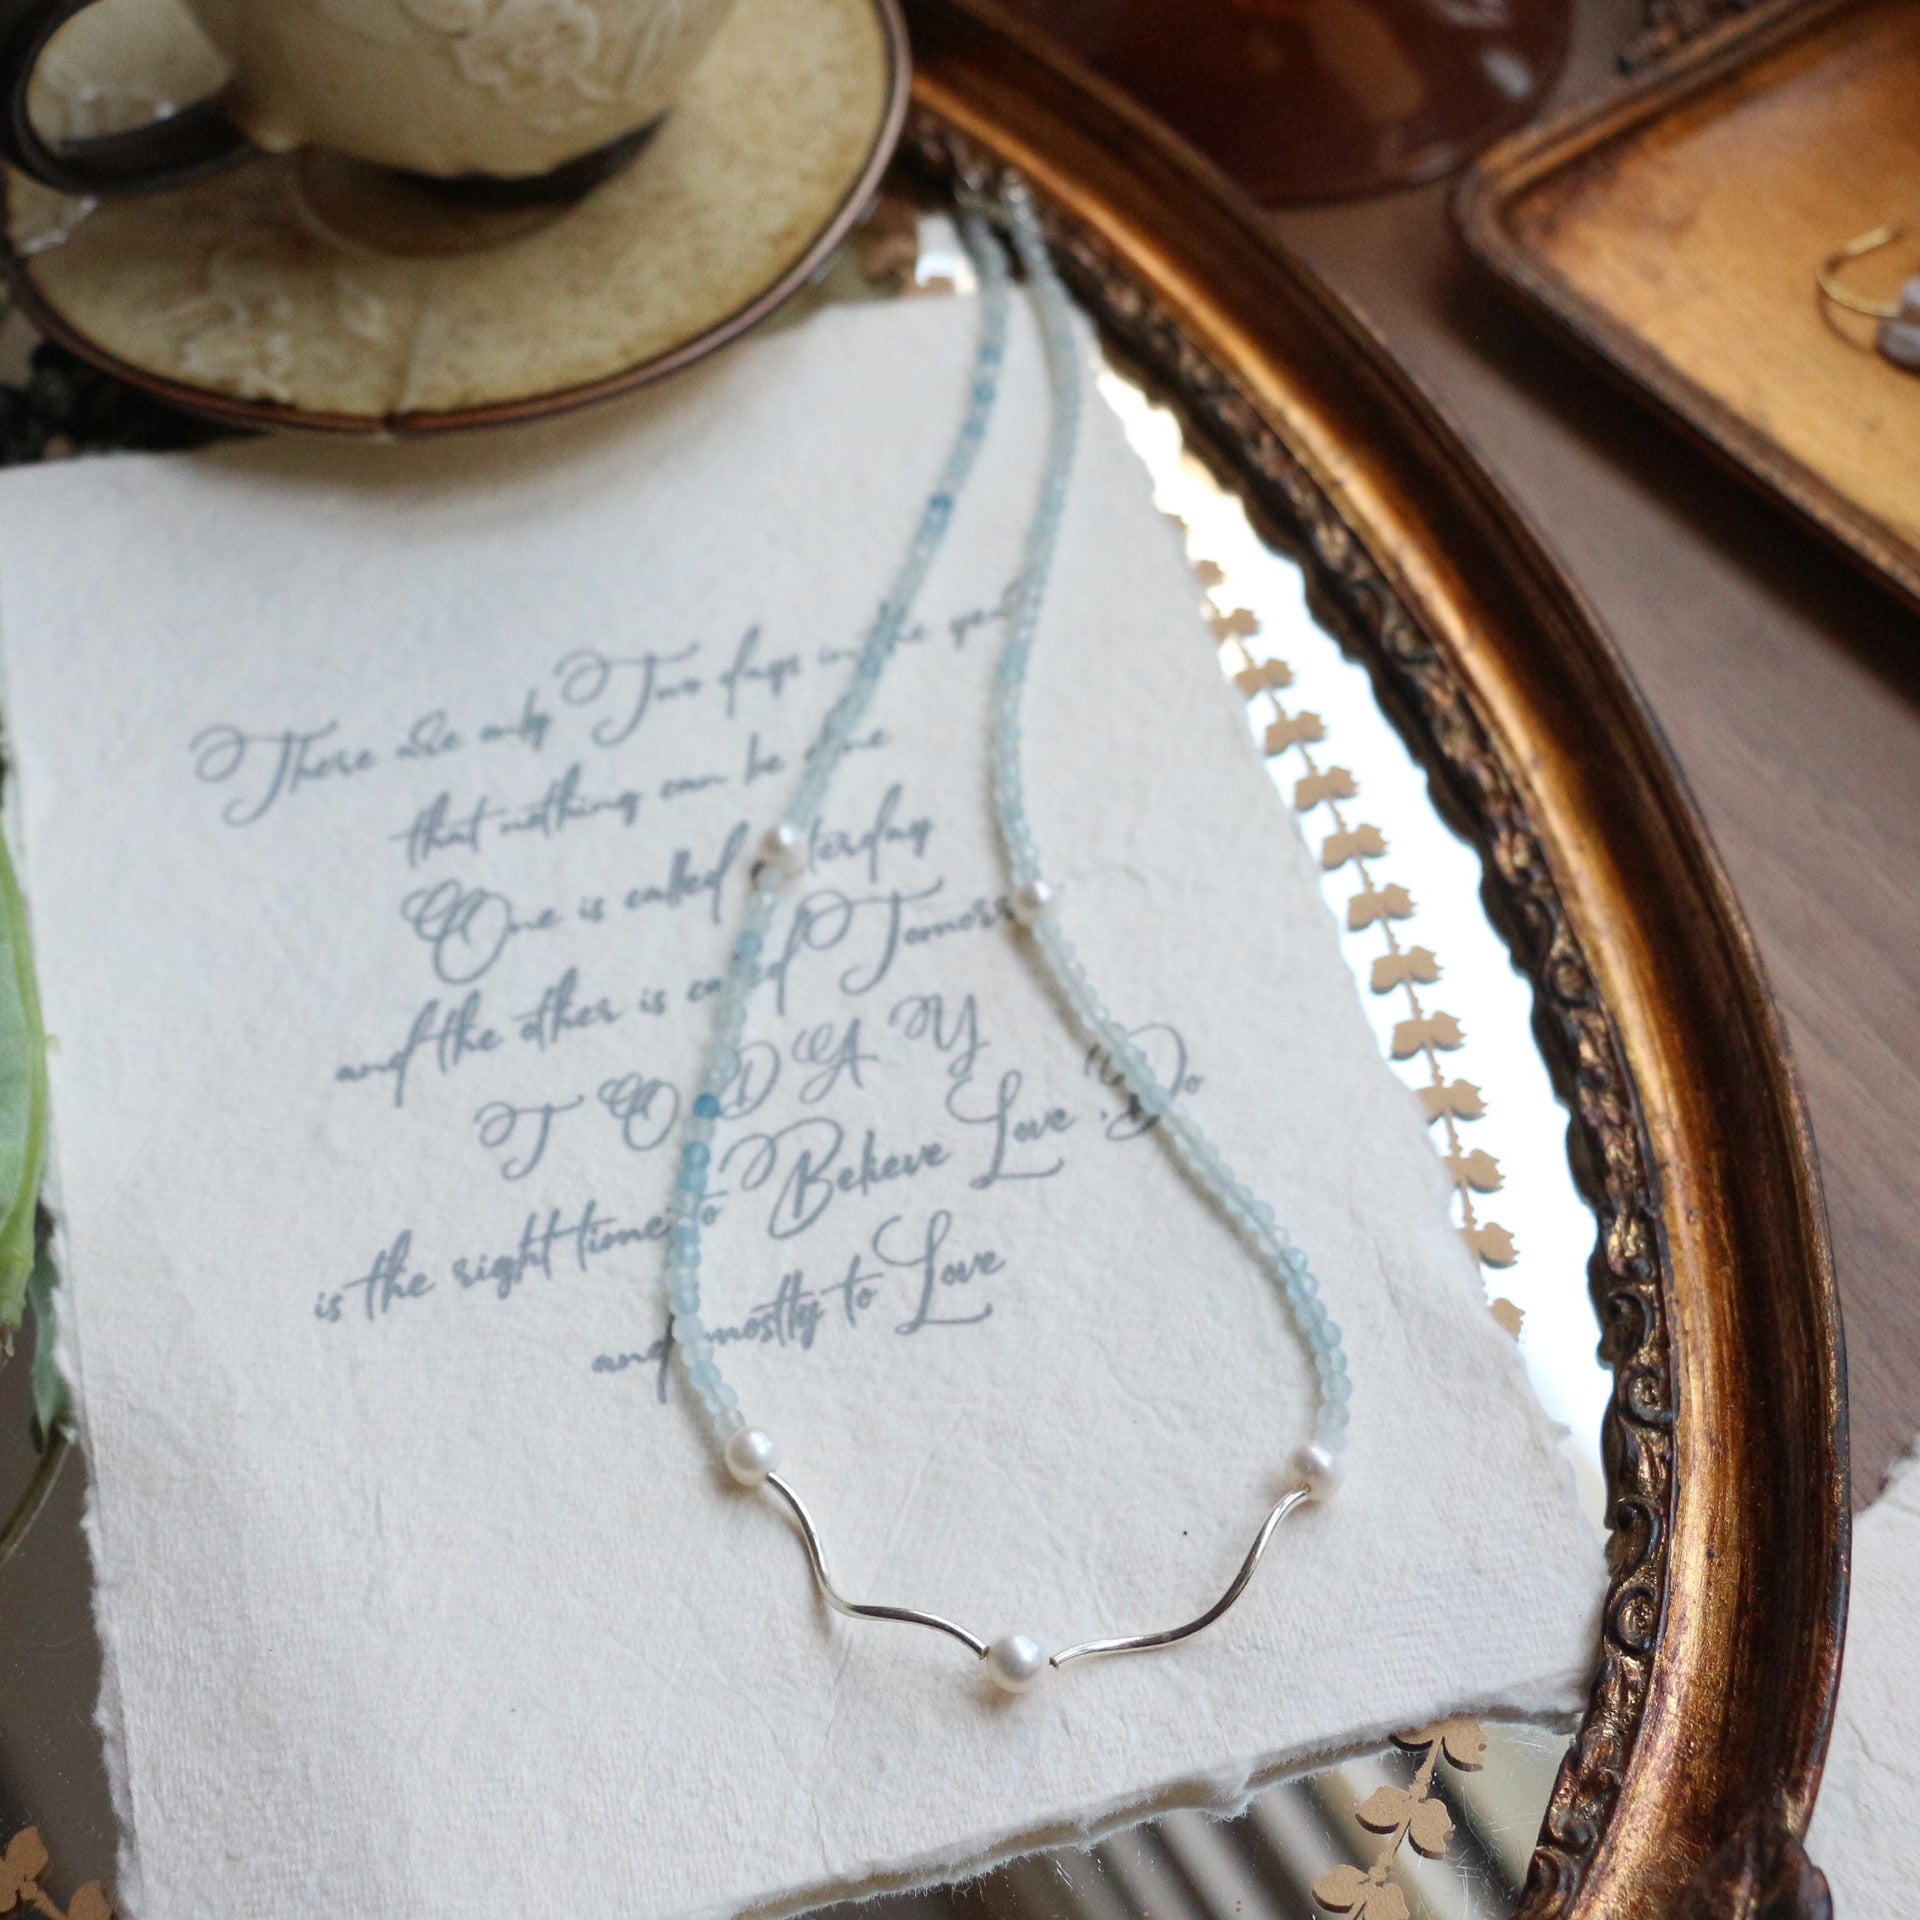 There are only Two days in the year
that nothing can be done
One is called Yesterday
and the other is called Tomorrow
TODAY
is the right time to Believe Love Do
and mostly to Love